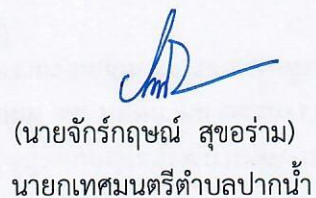 (นายจักร์กฤษณ์ สุขอร่าม)
นายกเทศมนตรีตำบลปากน้ำ